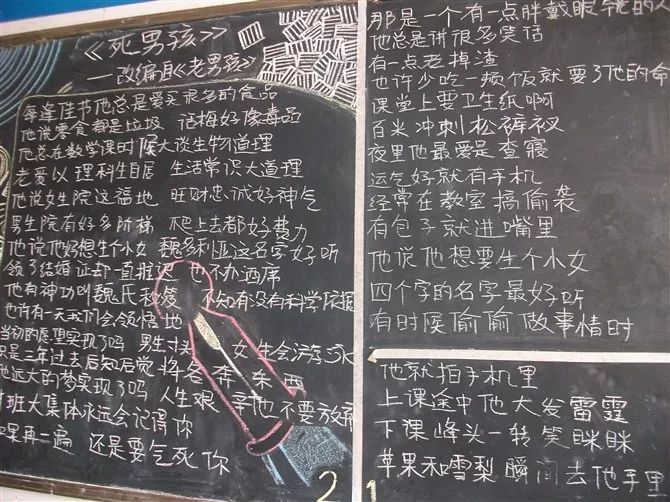 《死男孩》
——改编自《老男孩》
每逢佳书他总是爱买很多的食品
他说零食都是垃圾 话梅好像毒品
他总在教学课时候大谈生物道理
老爱以理科生自居 生活常识大道理
他说女生院这福地 旺财忠诚好神气
男生院有好多阶梯 爬上去都好费力
他说他好想生个小女 魏多利亚这名字好听
领了结婚证却一直推迟 也不办酒席
他有神功叫魏氏秘笈 不知有没有科学依据
也许有一天我们会领悟地
当初的愿望实现了吗 男生寸头 女生会游泳
只是三年过去后知后觉 将各奔东西
他远大的梦实现了吗 人生艰辛他也不要放
班大集体永远会记得你
如果再一遍 还是要气死你
2
那是一个有一点胖戴眼镜的
他总是讲很多笑话
有一点老掉渣
也许少吃一顿饭就要了他的命
课堂上要卫生纸啊
百米冲刺松裤衩
夜里他最爱是查寝
运气好就有手机
经常在教室搞偷袭
有包子就进嘴里
他说他想要生个小女
四个字的名字最好听
有时候偷偷做事情时
1
他就拍手机里
上课途中他大发雷霆
下课峰头一转笑眯眯
苹果和雪梨瞬间去他手里